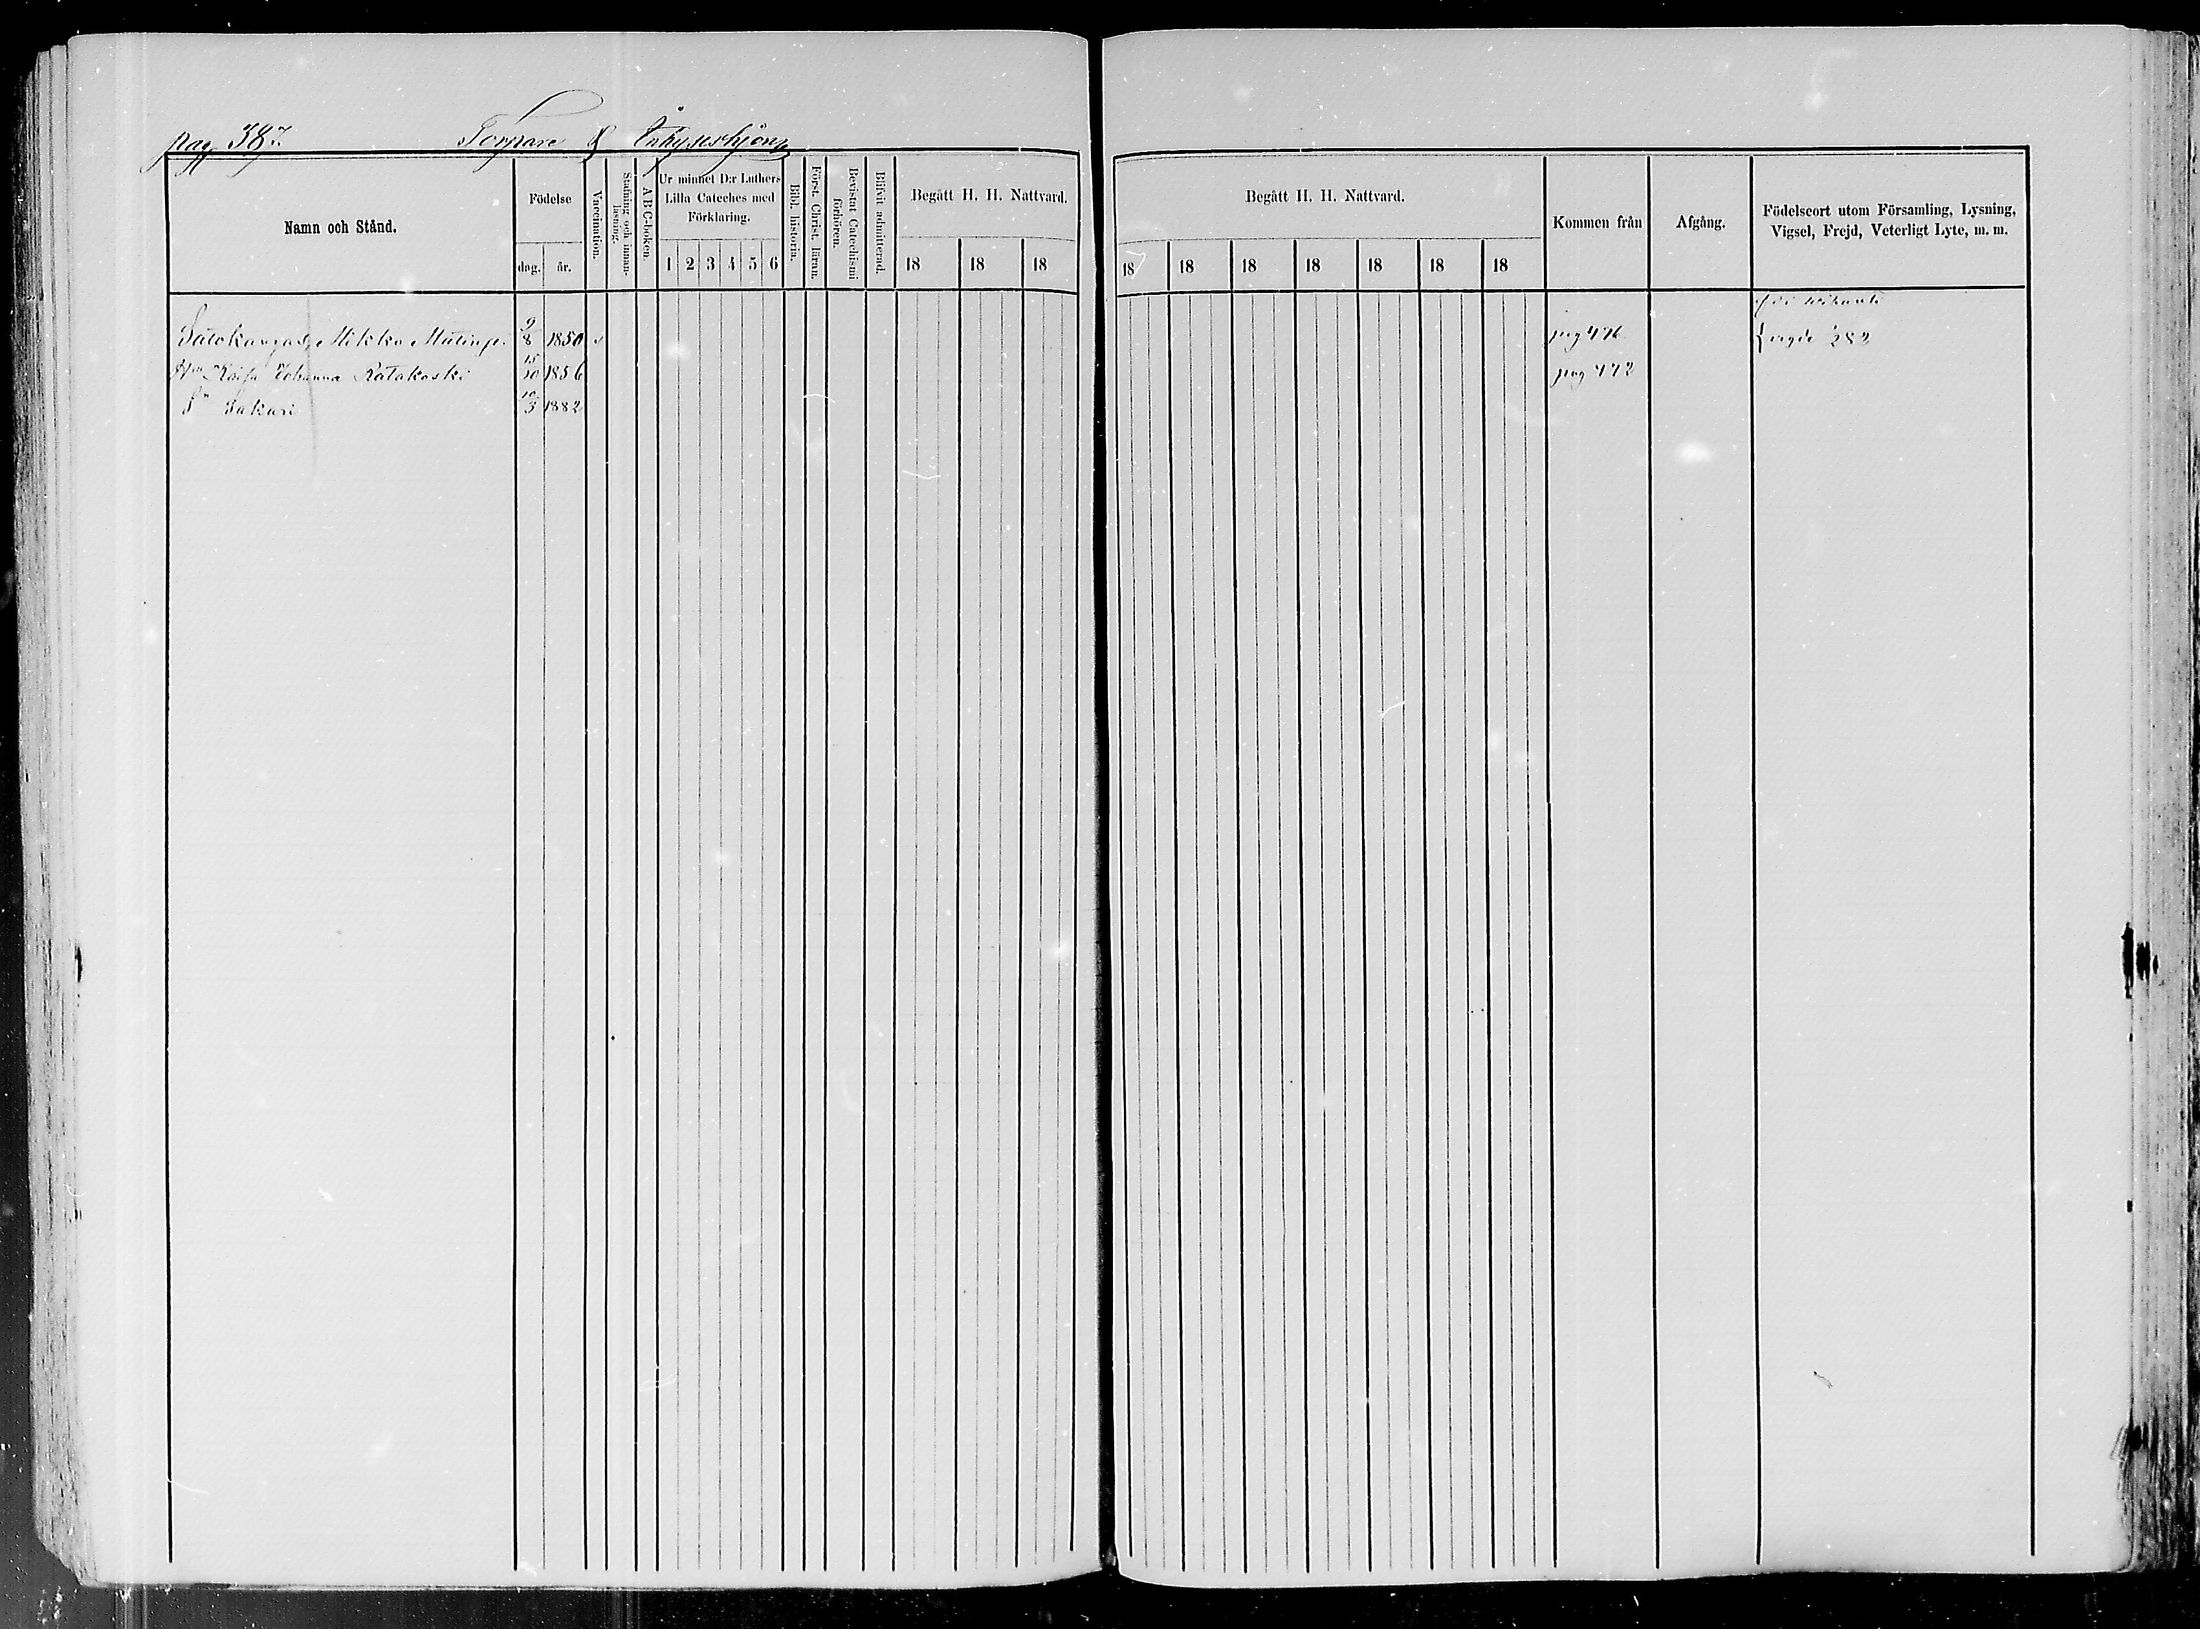 pag 387. Torpare & Inhyseshjon
Namn och Stånd.
Födelse
dag. år.
Vaccination.
Stafning och innan-läsning.
ABC-boken.
Ur minnet D:r Luthers
Lilla Cateches med
Förklaring.
1 2 3 4 5 6
Bibl. historia.
Först. Christ. läran.
Bevistat Catechismi förhören.
Blifvit admitterad.
Begått H. H. Nattvard.
18 18 18
Begått H. H. Nattvard.
18 18 18 18 18 18 18
Kommen från
Afgång.
Födelseort utom Församling, Lysning,
Vigsel, Frejd, Veterligt Lyte, m. m.
Salokangas, Mikko Matinp. 9/8 1850 pag 476 vigde 282
Hu Kaisa Johanna Ratakoski 15/10 1856 pag 472
Sn Sakari 10/3 1882